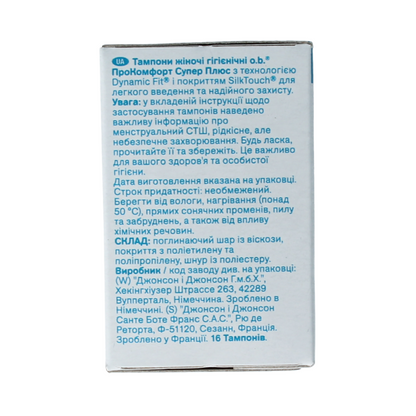 UA Тампони жіночі гігієнічні o.b.®
ПроКомфорт Супер Плюс з технологією
Dynamic Fit® і покриттям SilkTouch® для
легкого введення та надійного захисту.
Увага: у вкладеній інструкції щодо
застосування тампонів наведено
важливу інформацію про
менструальний СТШ, рідкісне, але
небезпечне захворювання. Будь ласка,
прочитайте її та збережіть. Це важливо
для вашого здоров'я та особистої
гігієни.
Дата виготовлення вказана на упаковці.
Строк придатності: необмежений.
Берегти від вологи, нагрівання (понад
50 °C), прямих сонячних променів, пилу
та забруднень, а також від впливу
хімічних речовин.
СКЛАД: поглинаючий шар із віскози,
покриття з поліетилену та
поліпропілену, шнур із поліестеру.
Виробник / код заводу див. на упаковці:
(W) "Джонсон і Джонсон Г.м.б.Х.",
Хекінгхіузер Штрассе 263, 42289
Вупперталь, Німеччина. Зроблено в
Німеччині. (S) "Джонсон і Джонсон
Санте Боте Франс С.А.С.", Рю де
Реторта, Ф-51120, Сезанн, Франція.
Зроблено у Франції. 16 Тампонів.